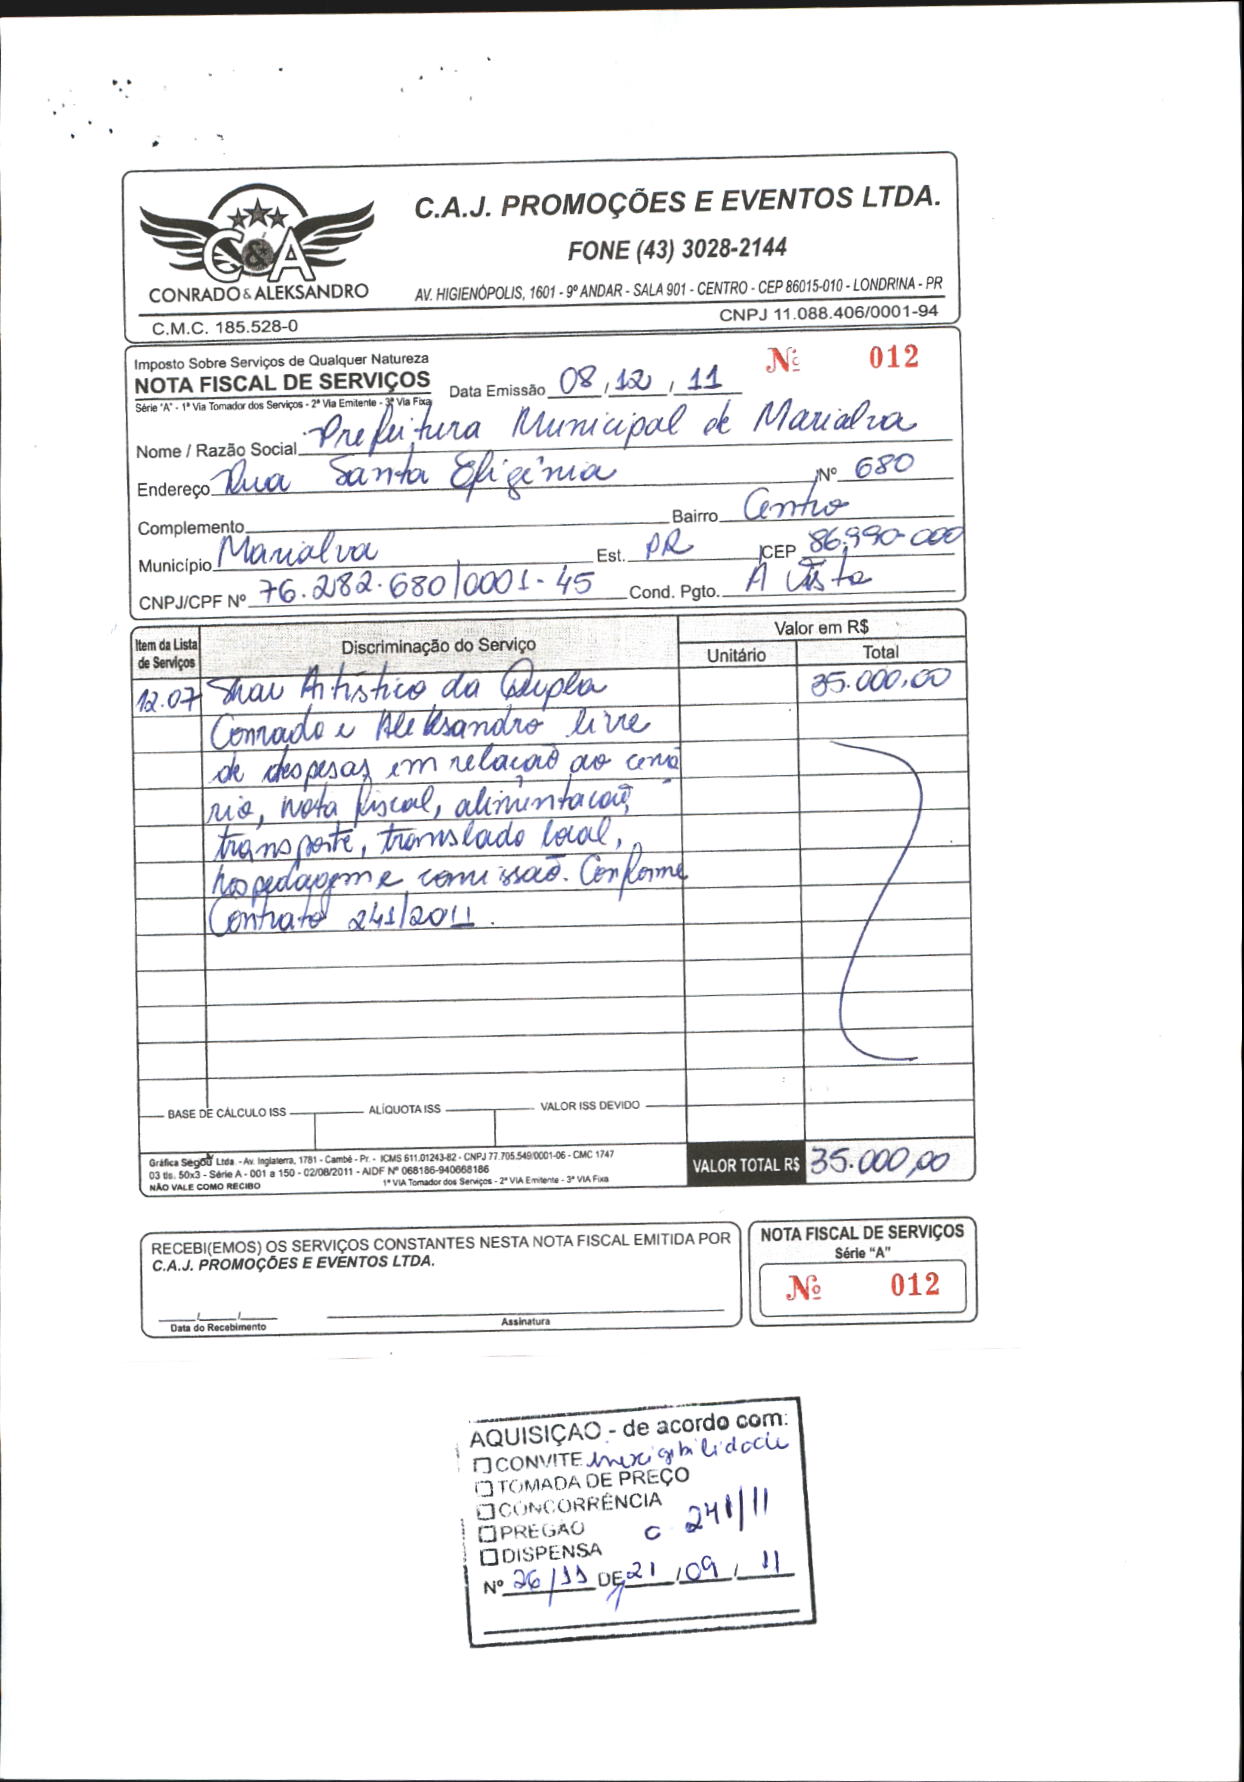 C&A
CONRADO & ALEKSANDRO
C.A.J. PROMOÇÕES E EVENTOS LTDA.
FONE (43) 3028-2144
AV. HIGIENÓPOLIS, 1601 - 9º ANDAR - SALA 901 - CENTRO - CEP 86015-010 - LONDRINA - PR
C.M.C. 185.528-0
CNPJ 11.088.406/0001-94
Imposto Sobre Serviços de Qualquer Natureza
NOTA FISCAL DE SERVIÇOS
Data Emissão 08, 12, 11
Nº 012
Série "A" - 1ª Via Tomador dos Serviços - 2ª Via Emitente - 3ª Via Fixa
Nome / Razão Social Prefeitura Municipal de Marialva
Endereço Rua Santa Efigênia Nº 680
Complemento Bairro Centro
Município Marialva Est. PR CEP 86.990-000
CNPJ/CPF Nº 76.282.680/0001-45 Cond. Pgto. A Vista
Item da Lista de Serviços
Discriminação do Serviço
Valor em R$
Unitário
Total
12.07 Show Artístico da Dupla 35.000,00
Conrado e Aleksandro livre
de despesas em relacão ao cená
rio, nota fiscal, alimentacaõ,
transporte, translado local,
hospedagem e comissão. Conforme
Contrato 241/2011.
BASE DE CÁLCULO ISS
ALÍQUOTA ISS
VALOR ISS DEVIDO
Gráfica Segou Ltda - Av. Inglaterra, 1781 - Cambé - Pr. - ICMS 611.01243-82 - CNPJ 77.705.549/0001-06 - CMC 1747
03 tls. 50x3 - Série A - 001 a 150 - 02/08/2011 - AIDF Nº 068186-940668186
NÃO VALE COMO RECIBO
1ª VIA Tomador dos Serviços - 2ª VIA Emitente - 3ª VIA Fixa
VALOR TOTAL R$ 35.000,00
RECEBI(EMOS) OS SERVIÇOS CONSTANTES NESTA NOTA FISCAL EMITIDA POR
C.A.J. PROMOÇÕES E EVENTOS LTDA.
Data do Recebimento
Assinatura
NOTA FISCAL DE SERVIÇOS
Série "A"
Nº 012
AQUISIÇAO - de acordo com:
CONVITE Inexigibilidade
TOMADA DE PREÇO
CONCORRÊNCIA
PREGÃO C 241/11
DISPENSA
Nº 26/11 DE 21/09/11